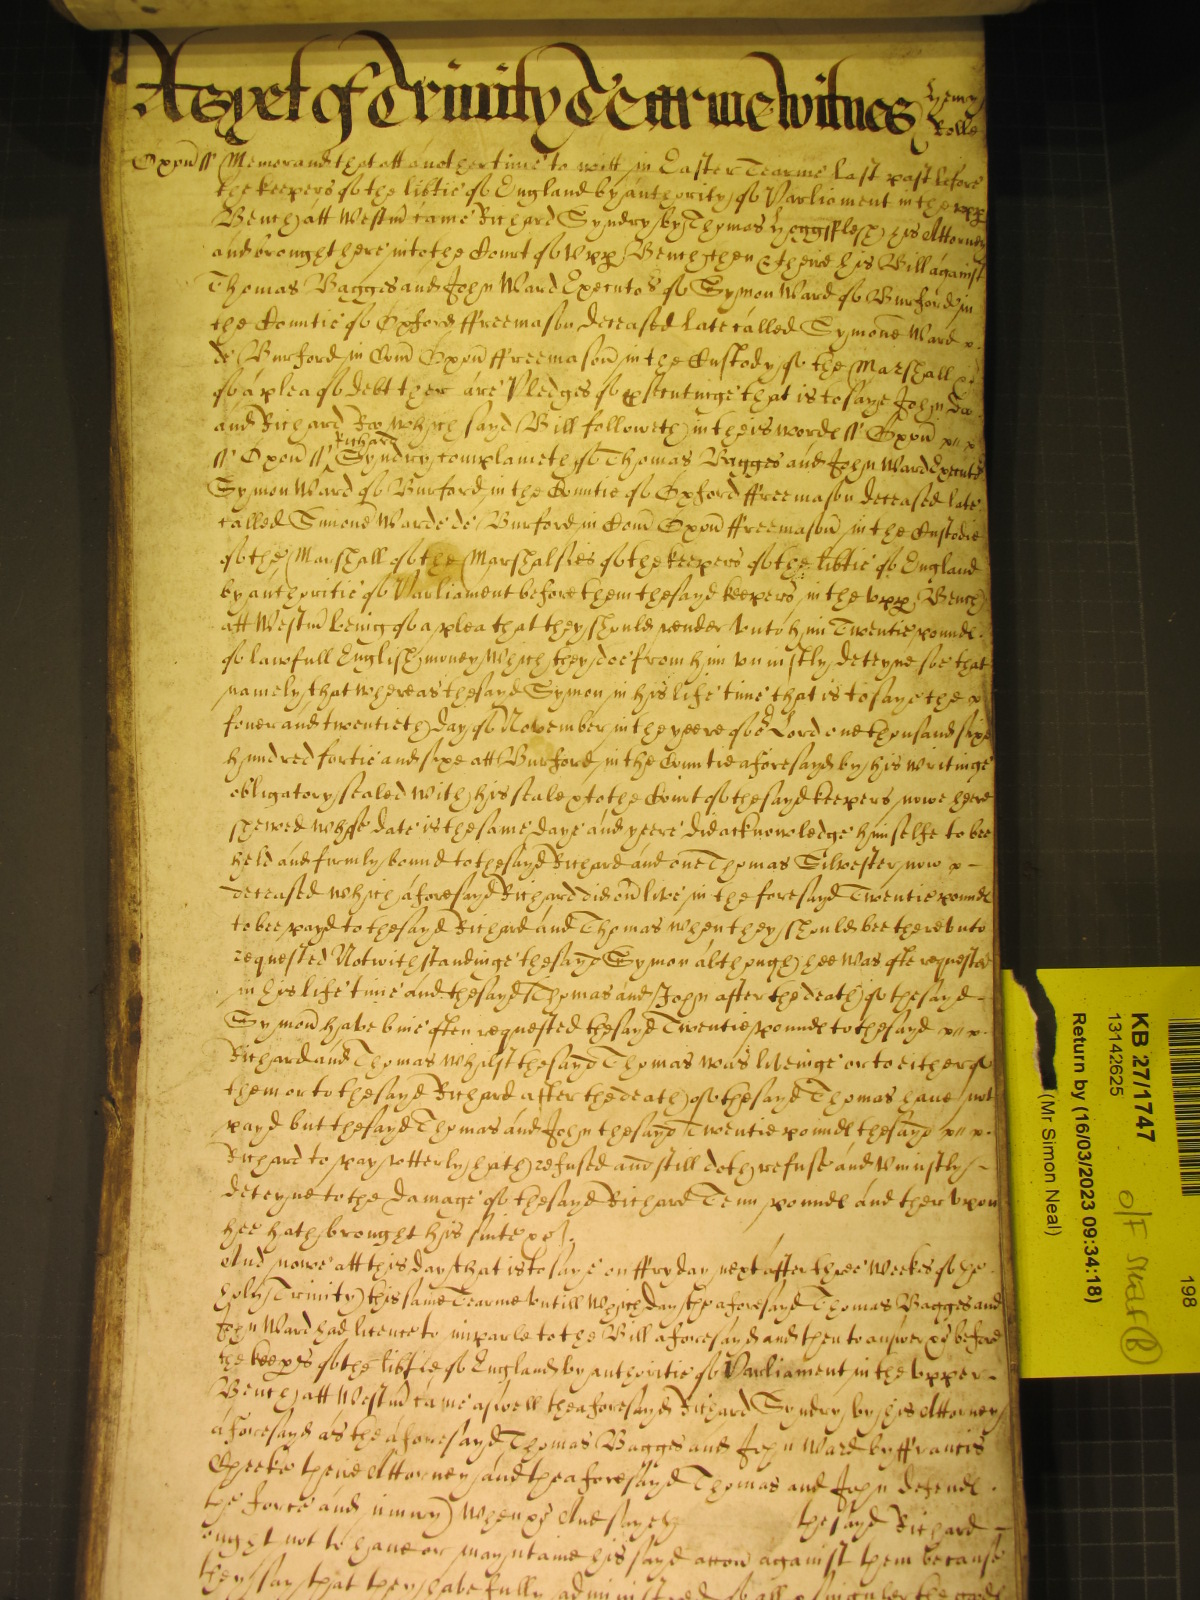 As yet of Trinity Tearme Witnes Henry Rolle
Oxon ss Memorand that att another time to witt in Easter Tearme last past before
the keepers of the libtie of England by authority of Parliament in the upp
Bench att Westm came Richard Syndry by Thomas his Attorney
and brought here into the Court of upp Bench then & there his Bill against
Thomas Bagges and John Ward Executos of Symon Ward of Burford in
the Countie of Oxford ffreemason deceased late called Symone Ward
de Burford in Com Oxon ffreemason in the Custody of the Marshall &c
of a plea of debt ther are Pledges of psecutinge that is to saye John Doe
and Richard Roe which sayd Bill followeth in theis wordes ss Oxon
ss Oxon ss Richard Syndry complaineth of Thomas Bagges and John Ward Executos
Symon Ward of Burford in the Countie of Oxford ffreemason deceased late
called Simone Warde de Burford in Com Oxon ffreemason in the Custodie
of the Marshall of the Marshalsies of the keepers of the libtie of England
by authoritie of Parliament before them the sayd keepers in the upp Bench
att Westm being of a plea that they should render unto him Twentie poundes
of lawfull English money which they doe from him uniustly deteyne for that
namely that whereas the sayd Symon in his life time that is to saye the
fouer and twentieth day of November in the yeere of or Lord one thousand sixe
hundred fortie and sixe att Burford in the Countie aforesayd by his writinge
obligatory sealed with his seale & to the Court of the sayd keepers nowe heere
shewed whose date is the same daye and yeere did acknowledge himselfe to bee
held and firmly bound to the sayd Richard and one Thomas Silvester now
deceased which aforesayd Richard did overlive in the foresayd Twentie poundes
to bee payd to the sayd Richard and Thomas when they should bee thereunto
requested Notwithstandinge the sayd Symon although hee was ofte requested
in his life time and the sayd Thomas and John after the death of the sayd
Symon have bine often requested the sayd Twentie poundes to the sayd
Richard and Thomas whilst the sayd Thomas was liveinge or to either of
them or to the sayd Richard after the death of the sayd Thomas have not
payd but the sayd Thomas and John the sayd Twentie poundes the sayd
Richard to pay utterly hath refused and still doth refuse and uniustly
deteyne to the damage of the sayd Richard Tenn poundes and ther upon
hee hath brought his suite &c
And nowe att this day that is to saye on ffryday next after three weekes of the
holy Trinity this same Tearme untill which day the aforesayd Thomas Bagges and
John Ward had licence to imparle to the Bill aforesayd and then to answer &c before
the keeps of the libtie of England by authoritie of Parliament in the upper
Bench att Westm came aswell the aforesayd Richard Syndry by his Attorney
aforesayd as the aforesayd Thomas Bagges and John Ward by ffrancis
theire Attorney and the aforesayd Thomas and John defend
the force and iniury when &c And say the sayd Richard
ought not to have or mayntaine his sayd accon against them because
they say that they have fully administred all & singuler the goods
KB 27/1747
13142625
Return by (16/03/2023 09:34:18)
(Mr Simon Neal)
198